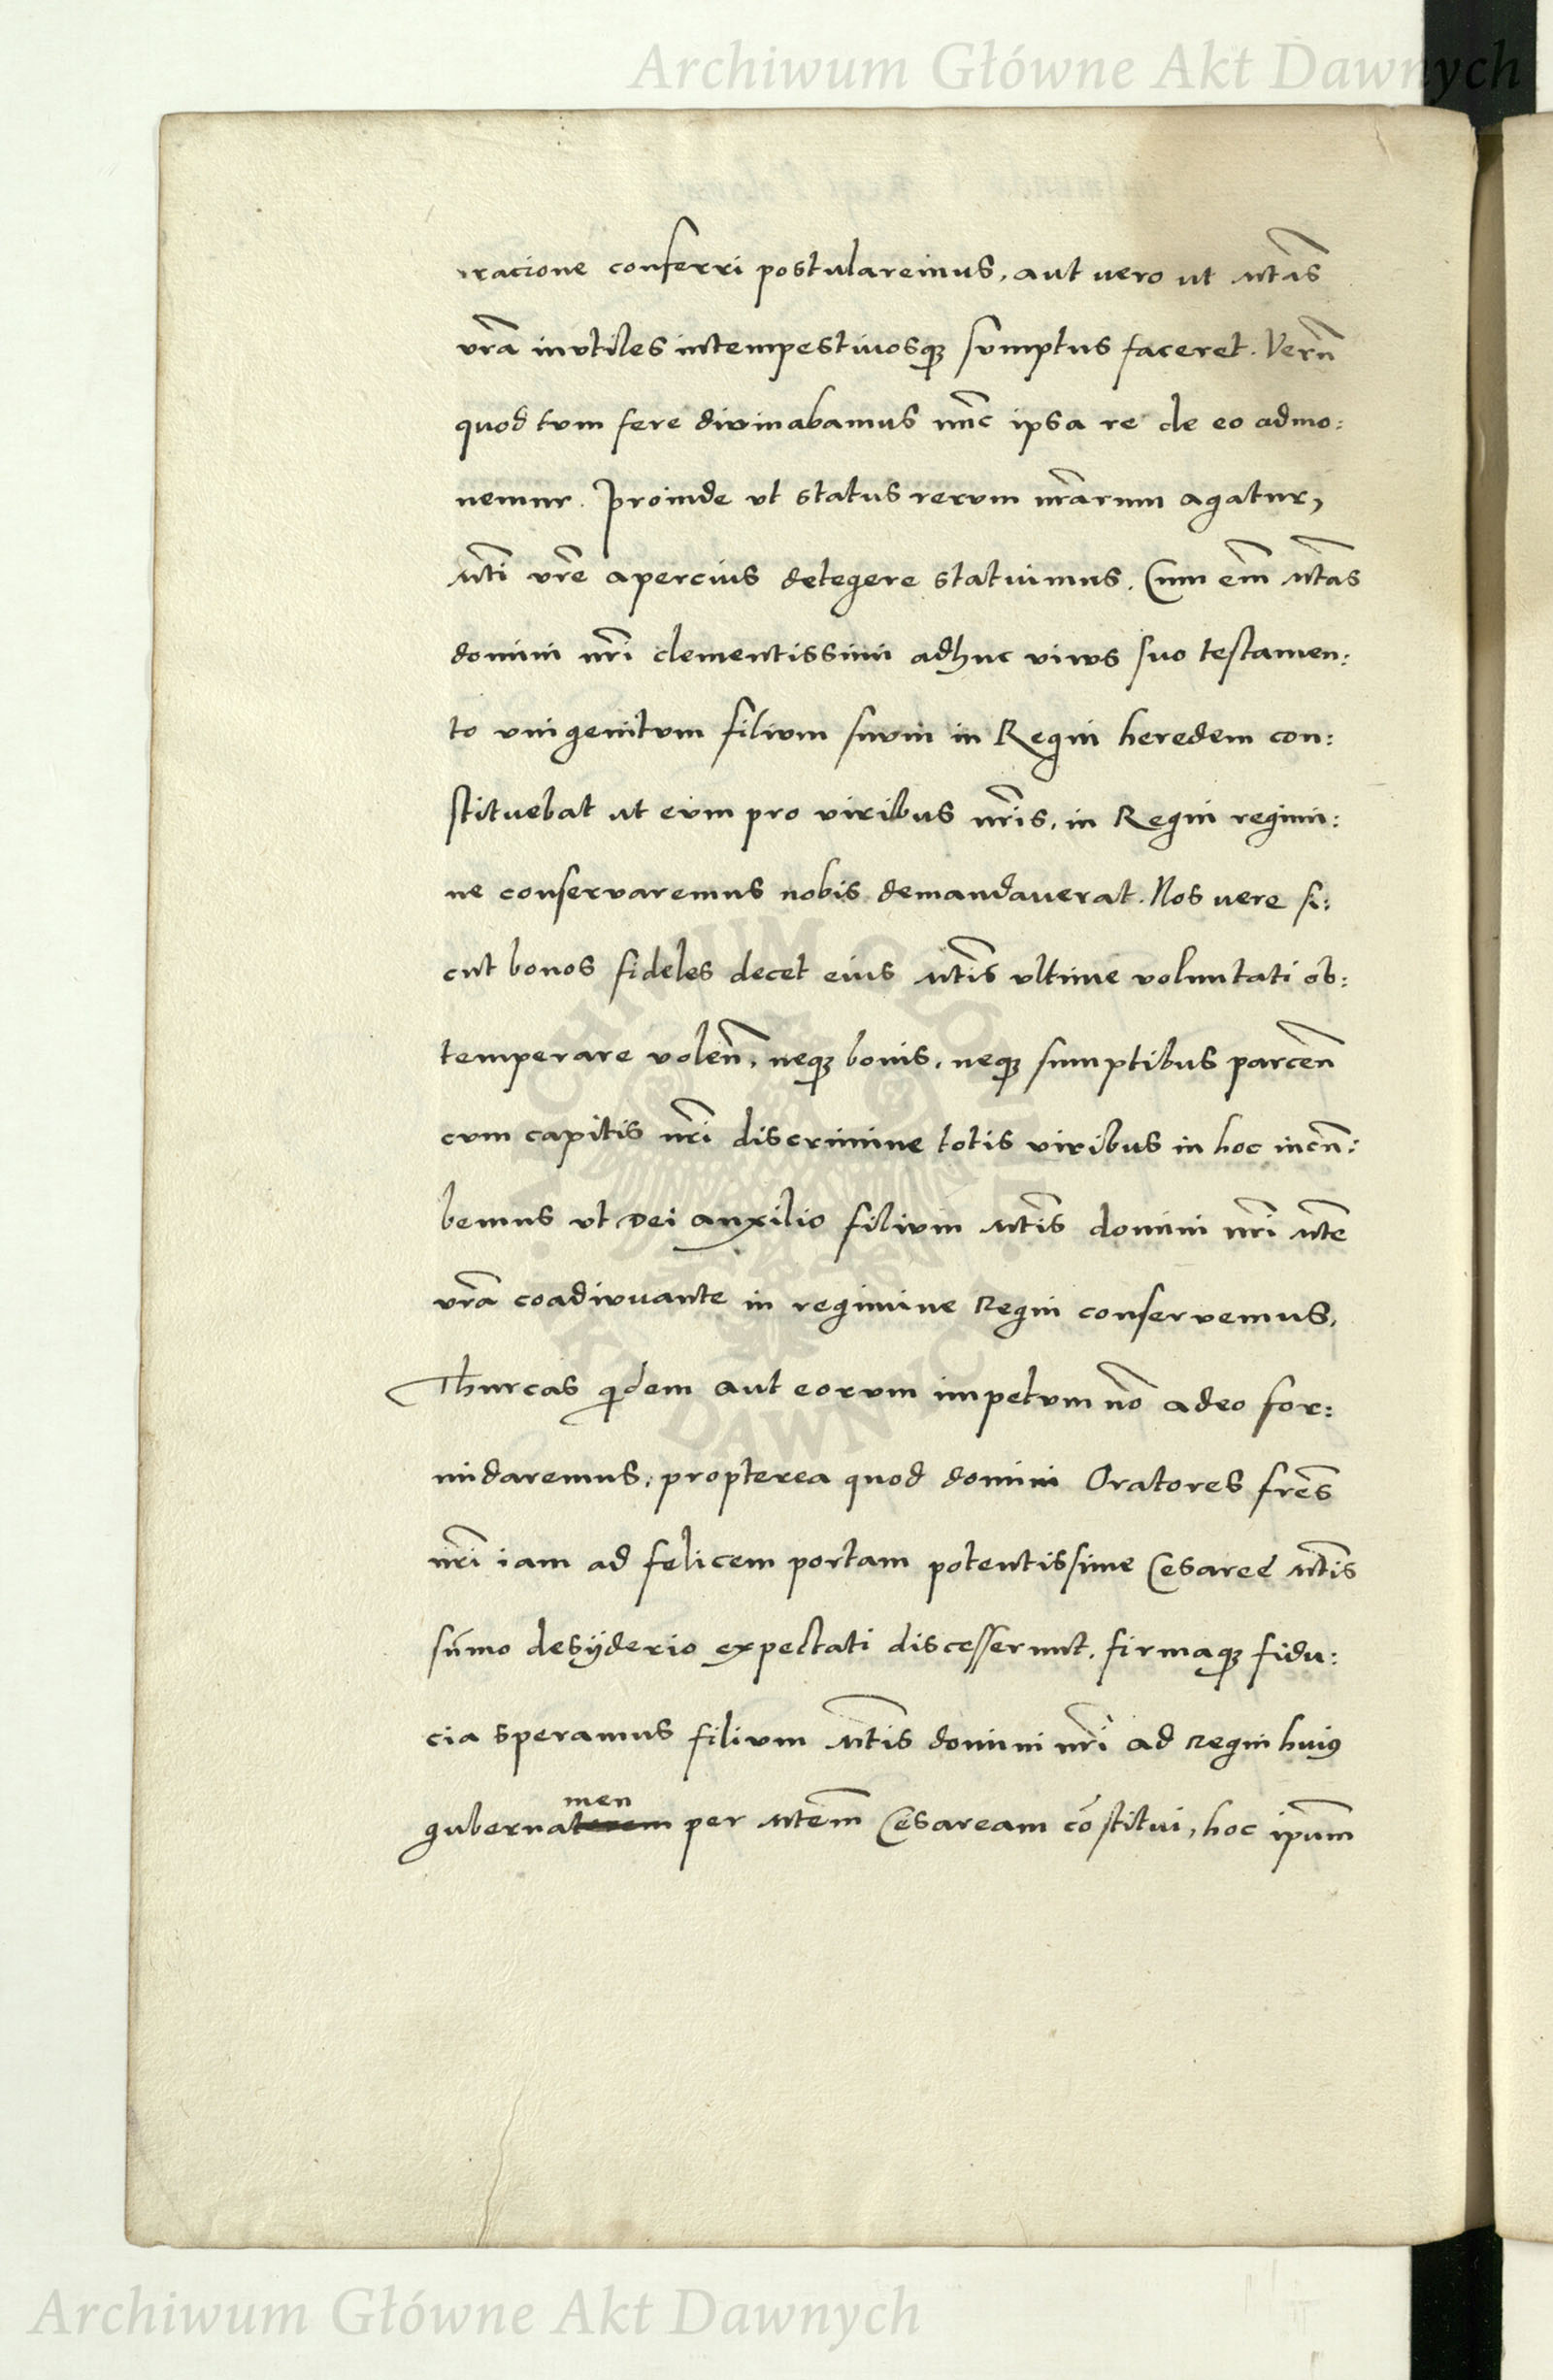 Archiwum Główne Akt Dawnych
racione conferri postularemus, aut vero ut Mtas
vra invtiles intempestiuosq; svmptus faceret. Verũ
quod tvm fere divinabamus nũc ipsa re de eo admo:
nemur. Proinde vt status rervm nrarum agatur,
Mti vre apercius detegere statuimus. Cum em̃ Mtas
domini nri clementissimi adhuc vivvs suo testamen:
to vnigenitvm filivm suvm in Regni heredem con:
stituebat ut evm pro viribus nris, in Regni regimi:
ne conservaremus nobis demandauerat. Nos vere si:
cut bonos fideles decet eius Mtis vltime voluntati ob:
temperare voleñ, neq; bonis, neq; sumptibus parceñ
cvm capitis nri discrimine totis viribus in hoc incũ:
bemus vt Dei auxilio filivm Mtis domini nri Mte
vra coadivuante in regimine Regni conservemus,
Thurcas qidem aut eorvm impetvm nõ adeo for:
midaremus, propterea quod domini Oratores fres
nri iam ad felicem portam potentissime Cesaree Mtis
sũmo desÿderio expectati discesserunt, firmaq; fidu:
cia speramus filivm Mtis domini nri ad Regni huiꝰ
gubernaterem men per Mtem Cesaream cõstitui, hoc ipsum
ARCHIWUM GŁÓWNE AKT DAWNYCH
Archiwum Główne Akt Dawnych